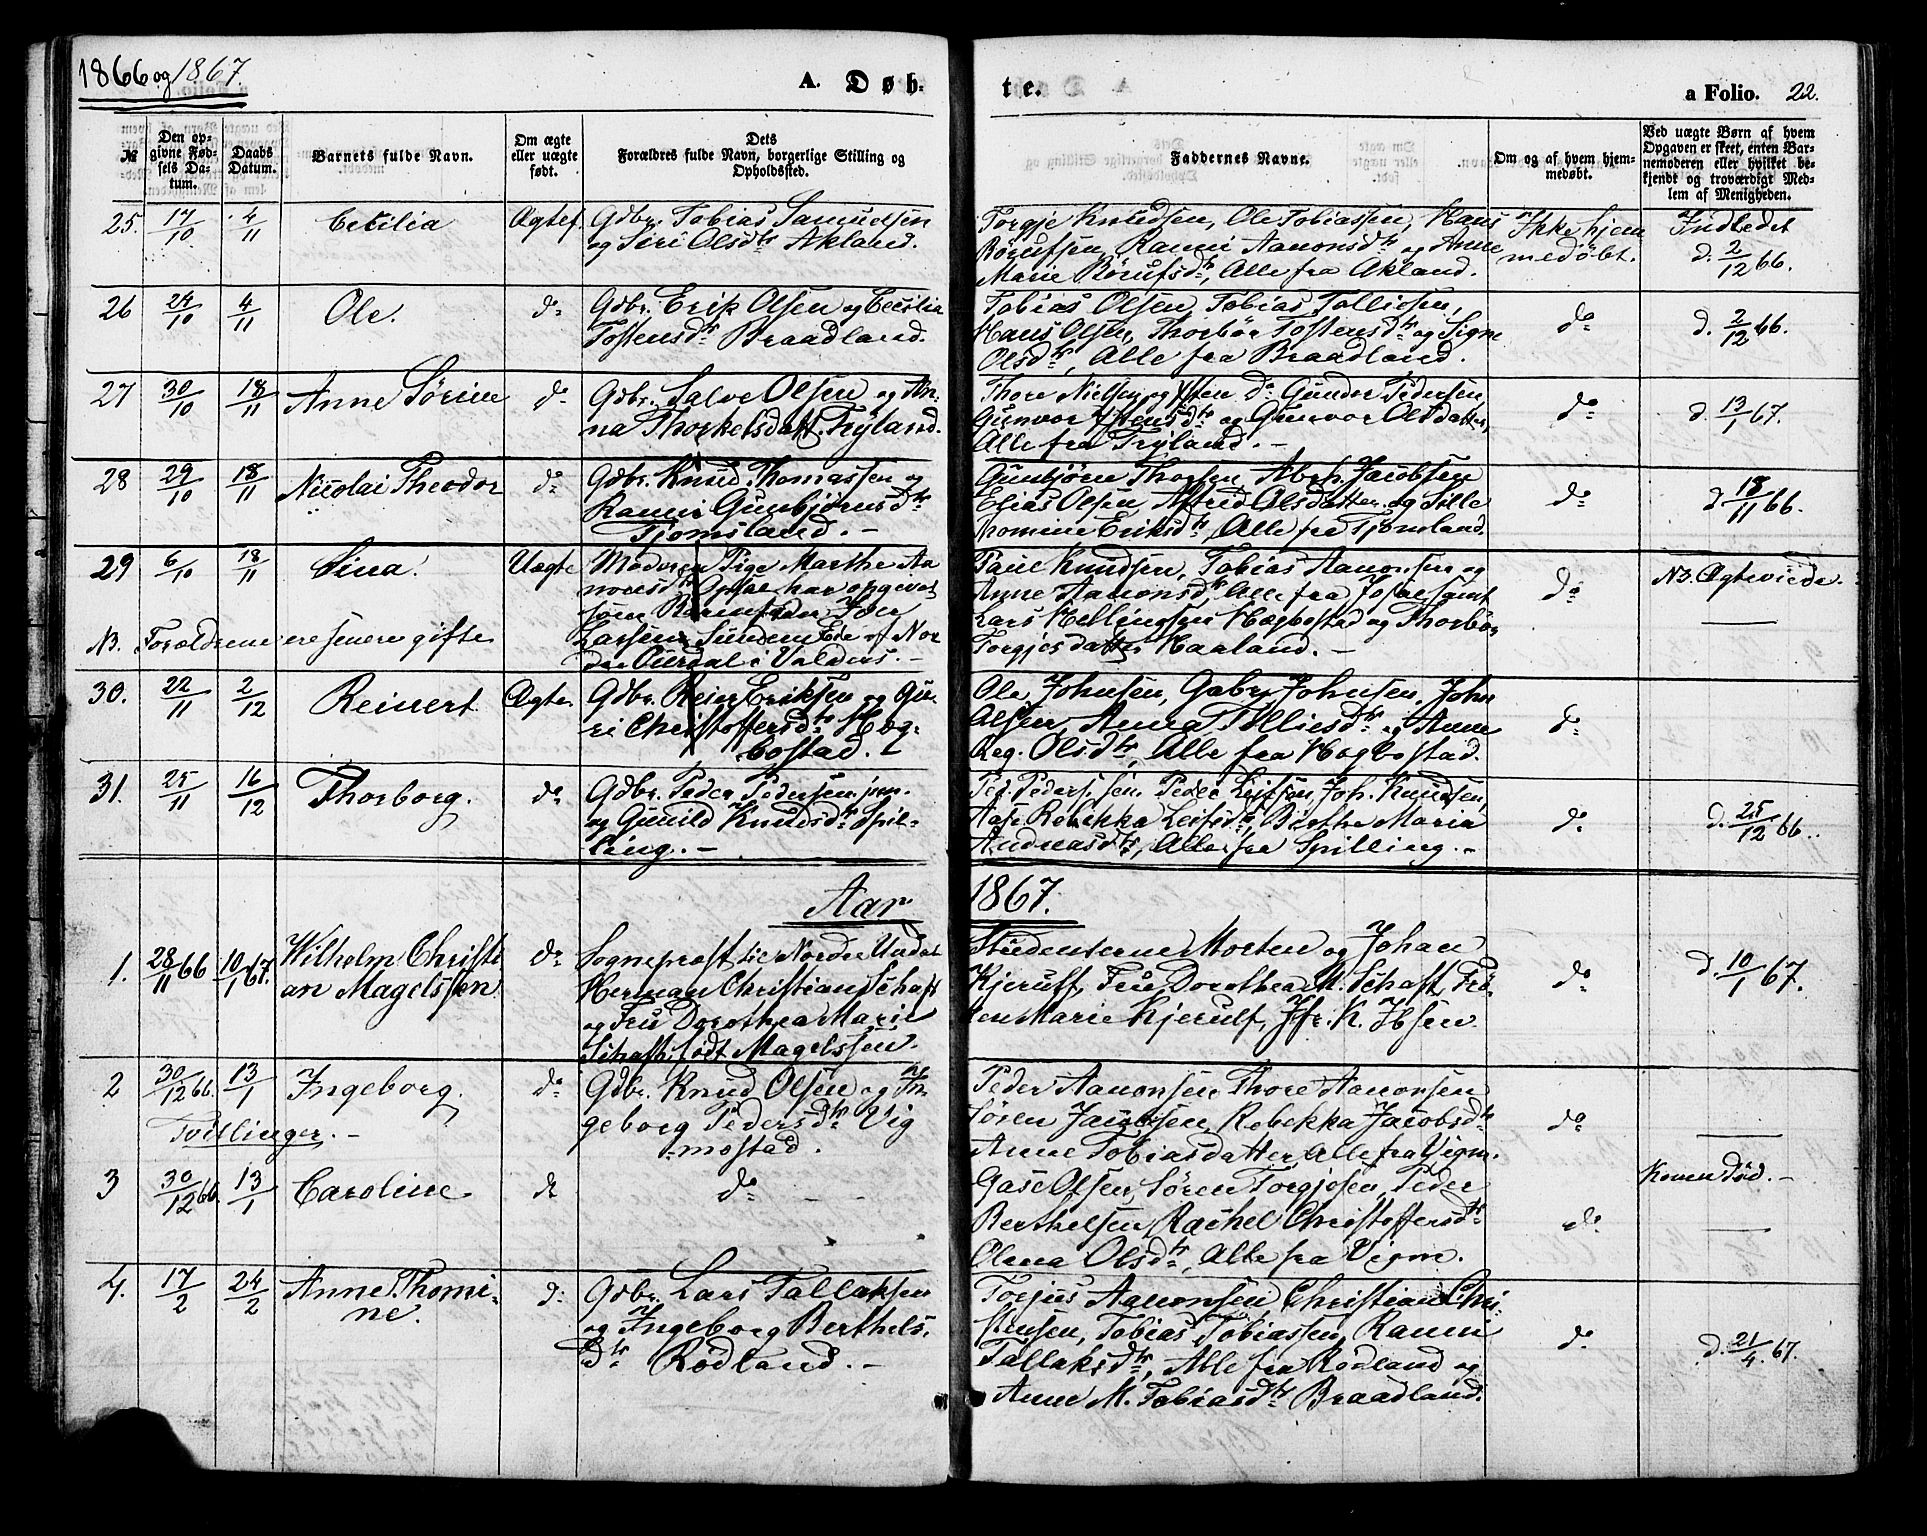 1866 og 1867.
A. Døb-
te.
a Folio. 22.
№
Den op-
givne Fød-
sels Da-
tum.
Daabs
Datum.
Barnets fulde Navn.
Om ægte
eller uægte
født.
Dets
Forældres fulde Navn, borgerlige Stilling og
Opholdssted.
Faddernes Navne.
Om og af hvem hjem-
medøbt.
Ved uægte Børn af hvem
Opgaven er skeet, enten Bar-
nemoderen eller hvilket be-
kjendt og troværdigt Med-
lem af Menigheden.
25. 17/10 4/11 Cecilia Ægtef.
Gdbr. Tobias Samuelsen
og Siri Olsdtr Akland.
Torgje Knudsen, Ole Tobiassen, Hans
Rørufsen, Ranni Aanonsdtr og Anne
Marie Rørufsdtr, Alle fra Akland.
Ikke hjem
medøbt.
Indledet
d. 2/12 66.
26 24/10 4/11 Ole. do
Gdbr. Erik Olsen og Cecilia
Tostensdtr Braadland.
Tobias Olsen, Tobias Tolliesen,
Hans Olsen, Thorbør Tostensdtr og Signe
Olsdtr, Alle fra Braadland.
do
d. 2/12 66.
27 30/10 18/11 Anne Sørine do
Gdbr. Salve Olsen og An-
na Thorkelsdatt. Trÿland.
Thore Nielsen og Ysten do Gunder Pedersen,
Gunvor Ystensdtr og Gunvor Olsdatter,
Alle fra Trÿland. -
do
d. 13/1 67.
28 29/10 18/11 Nicolai Theodor do
Gdbr. Knud Thomassen og
Ranni Gunbjørnsdtr
Tjomsland. -
Gunbjørn Thorsen, Abrh. Jacobsen
Elias Olsen, Astrid Olsdatter og Sille
Thomine Eriksdtr, Alle fra Tjomsland.
do
d. 18/11 66.
29 6/10 18/11 Sina. Uægte
Moderen Pige Marthe Aa
nonsdtr har opgivet
som Barnefader Iver
Larsen Sundem Eie af Nor
dre Ourdal i Valders. -
NB. Forældrene ere senere gifte
Knudsen, Tobias Aanonsen og
Anne Aanonsdtr, Alle fra samt
Lars Hellingsen Hægbostad og Thorbør
Torgjesdatter Haaland. -
do
NB. Ægteviede.
30. 22/11 2/12 Reinert. Ægte
Gdbr. Reier Eriksen og Gu-
ri Christoffersdtr Høg-
bostad. -
Ole Johnsen, Gabr. Johnsen, John
Olsen, Anna Tolliesdtr og Anne
Reg. Olsdtr, Alle fra Høgbostad.
do
31. 25/11 16/12 Thorborg. do
Gdbr. Peder Pedersen jun.
og Gunild Knudsdtr Spil-
ling. -
Ped. Pedersen, Peder Leifsen, Joh. Knudsen,
Aase Rebekka Leifsdtr, Birthe Maria
Andreasdtr, Alle fra Spilling. -
do
d. 25/12 66.
Aar
1867.
1. 28/11 66 10/1 67. Wilhelm Christi
an Magelssen do
Sognepræst til Nordre Undal
Herman Christian Schaft
og Fru Dorothea Marie
Schaft født Magelssen.
Studenterne Morten og Johan
Kjerulf, Fru Dorothea M. Schaft, Frø-
ken Marie Kjerulf, Jfr. K. Ibsen.
do
d. 10/1 67.
2 30/12 66. 13/1 Ingeborg. do
Tvillinger. -
Gdbr. Knud Olsen og In-
geborg Pedersdtr Vig
mostad.
Peder Aanonsen, Thore Aanonsen
Søren Jacobsen, Rebekka Jacobsdtr
Anne Tobiasdatter, Alle fra Vigm.
do
3 30/12 66. 13/1 Caroline do
do
Gase Olsen, Søren Torgjøsen, Peder
Berthelsen, Rachel Christoffersdtr
Olena Olsdtr, Alle fra Vigm.
do
Konen død. -
4. 17/2 24/2 Anne Thomi-
ne. do
Gdbr. Lars Tallaksen
og Ingeborg Berthels-
dtr Rødland. -
Torjus Aanonsen, Christian Chri-
stensen, Tobias Tobiassen, Ranni
Tallaksdtr, Alle fra Rødland og
Anne M. Tobiasdtr Braadland.
do
d. 21/4 67.